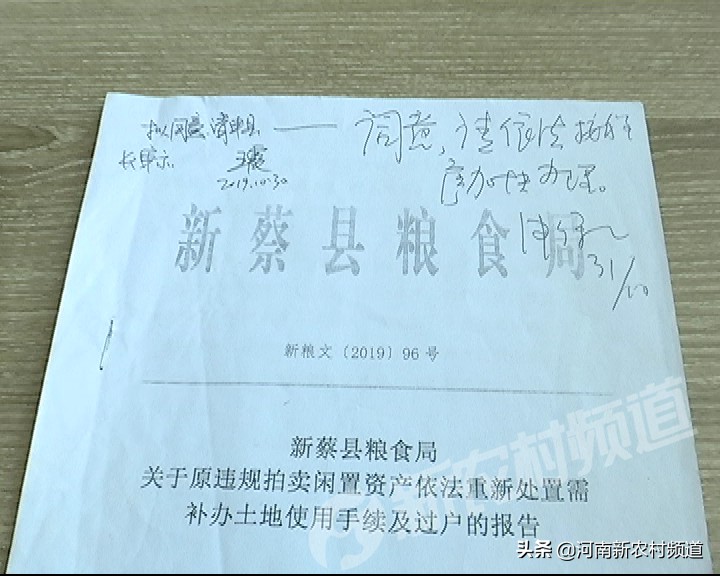 拟同意,请申县 —— 同意,请依法按程
长审示 序加快办理。
2019.10.30
31/10
新蔡县粮食局
新粮文〔2019〕96号
新蔡县粮食局
关于原违规拍卖闲置资产依法重新处置需
补办土地使用手续及过户的报告
新农村频道
头条 @河南新农村频道